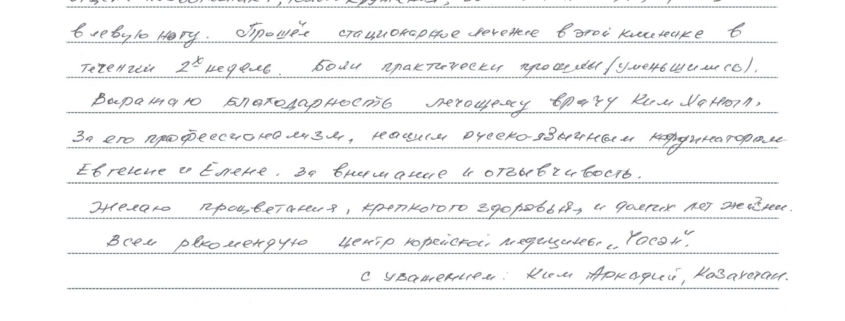 в левую ногу. Прошёл стационарное лечение в этой клинике в
течении 2х недель. Боли практически прошли (уменьшились).
Выражаю благодарность лечащему врачу Ким
за его профессионализм, нашим русско-язычным кординаторам
Евгение и Елене. за внимание и отзывчивость.
Желаю процветания, крепкого здоровья, и долгих лет жизни.
Всем рекомендую центр корейской медицины „Чосэн".
с уважением: Ким Аркадий, Казахстан.